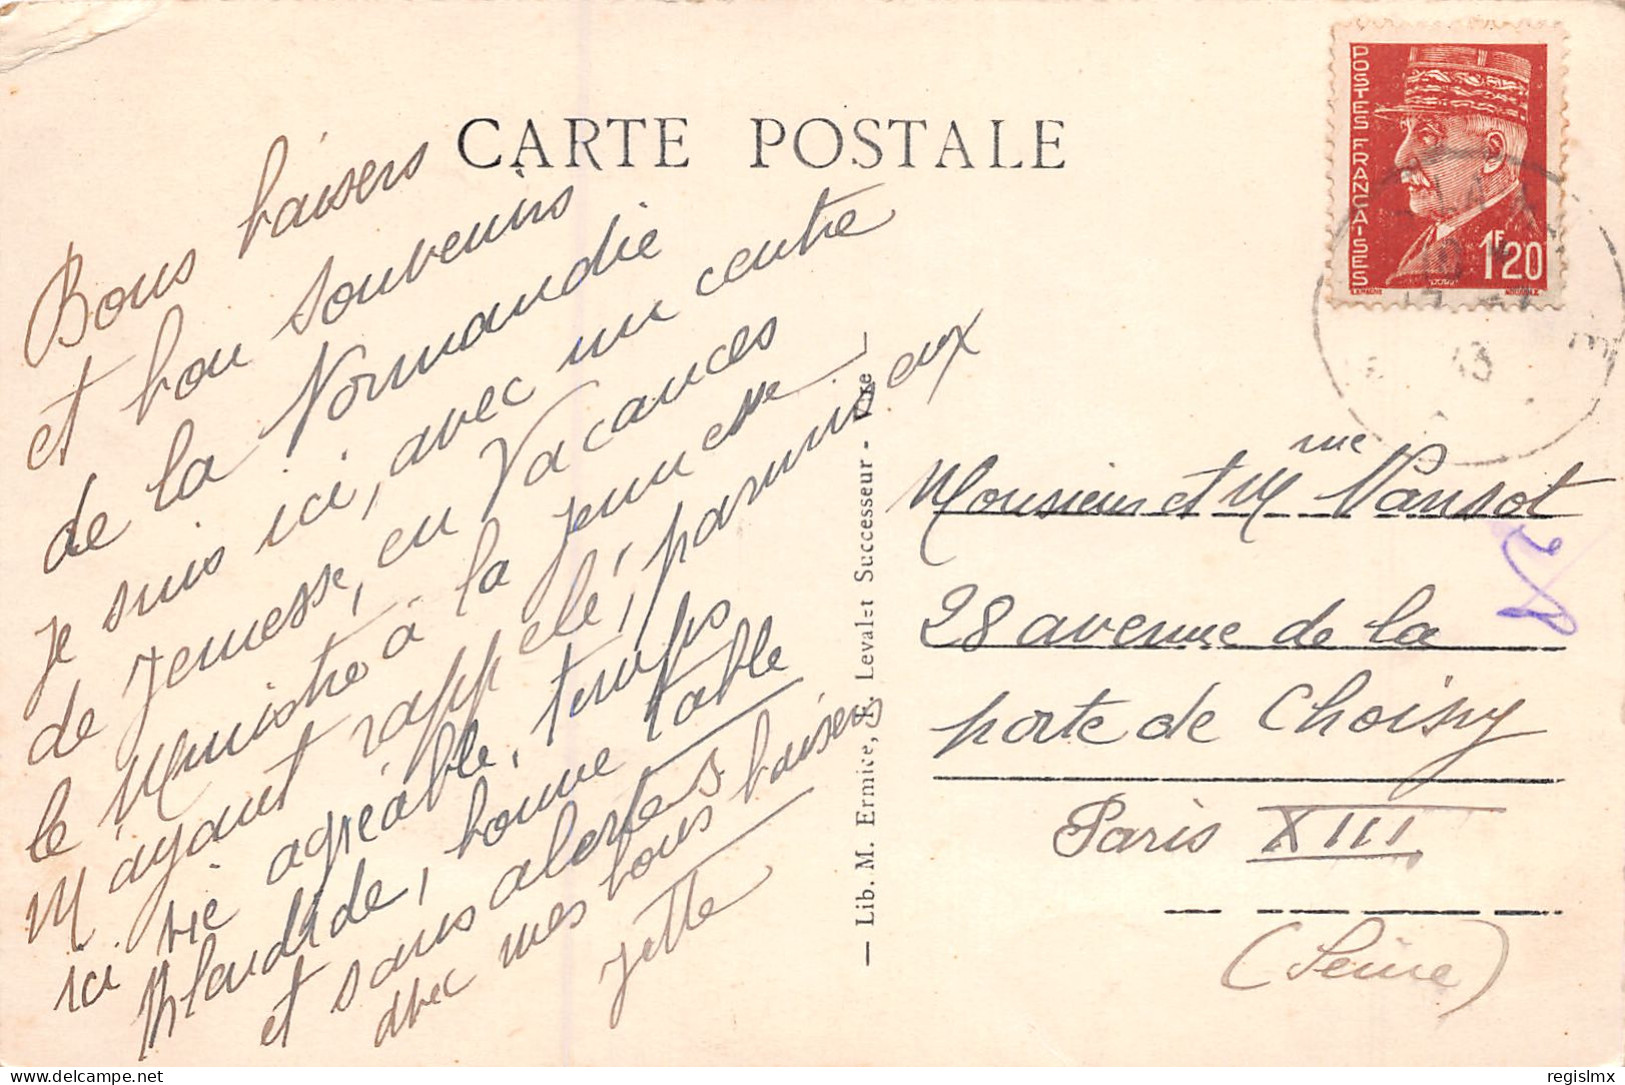 CARTE POSTALE
POSTES FRANCAISES
1F20
Bons baisers
et bon souvenirs
de la Normandie
Je suis ici, avec un centre
de Jeunesse, en Vacances
le Ministre à la Jeunesse
M'ayant rappelé, parmi eux
ici vie agréable, temps
splendide, bonne table
et sans alertes
avec mes bons baisers
Jette
— Lib. M. Ermice, F. Levalet Successeur - Vire
Monsieur et Mme Vansot
28 avenue de la
porte de Choisy
Paris XIII
(Seine)
delcampe.net
regislmx